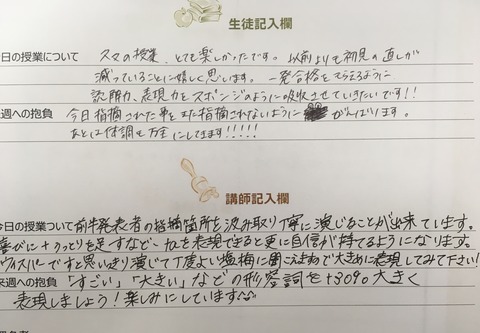 生徒記入欄
今日の授業について スマの授業、とても楽しかったです。以前よりも初見の直しが
減っていることに嬉しく思います。一発合格をもらえるように
読解力、表現力をスポンジのように吸収させていきたいです!!
来週への抱負 今日指摘された事をまた指摘されないように がんばります。
あとは体調も万全にしてきます!!!!!
講師記入欄
今日の授業ついて 前半発表者の指摘箇所を汲み取り丁寧に演じることが出来ています。
喜びに+うっとりを足すなど、+αを表現できると更に自信が持てるようになります。
ウィスパーですと思いきり演じて丁度よい塩梅に聞こえますので大きめに表現してみて下さい!
来週への抱負 「すごい」「大きい」などの形容詞を+30%大きく
表現しましょう!楽しみにしています